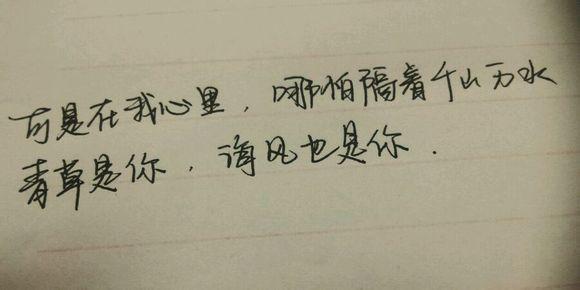 可是在我心里，哪怕隔着千山万水
青草是你，海风也是你．